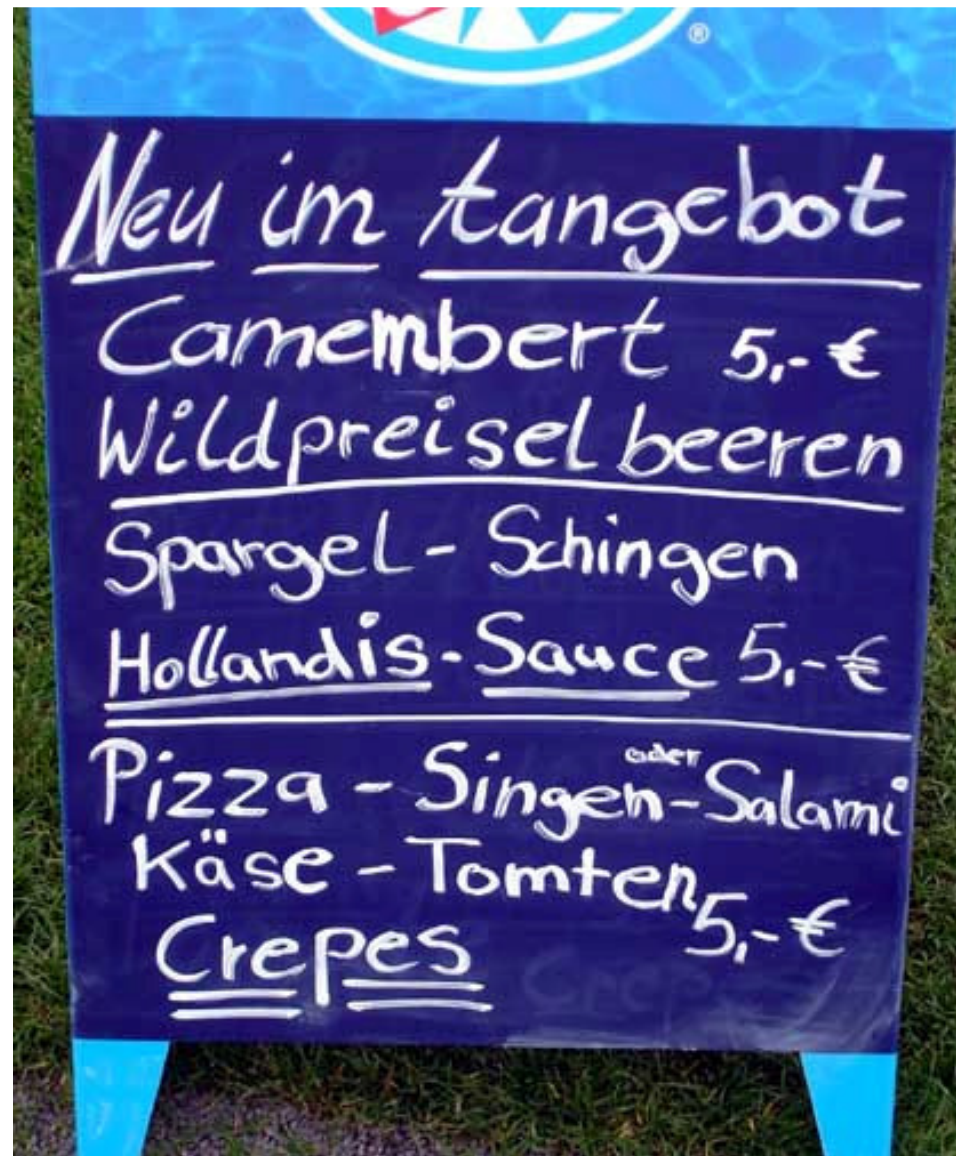 ®
Neu im tangebot
Camembert 5,-€
Wildpreisel beeren
Spargel - Schingen
Hollandis - Sauce 5,-€
oder
Pizza - Singen - Salami
Käse - Tomten 5,-€
Crepes